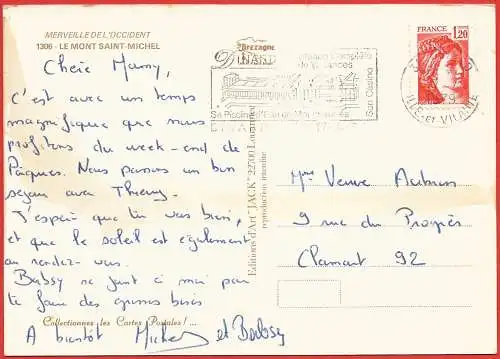 MERVEILLE DE L'OCCIDENT
1306 - LE MONT SAINT-MICHEL
Chère Mamy,
C'est avec un temps
magnifique que nous
profitons du week-end de
Pâques. Nous passons un bon
séjour avec Thierry.
J'espère que tu vas bien,
et que le soleil est également
au rendez-vous.
Babsy se joint à moi pour
te faire des grosses bises
Collectionnez les Cartes Postales ! ...
A bientôt Michel et Babsy
Editions d'Art "JACK" 22700 Louannec
reproduction interdite
Bretagne
DINARD
Sa Piscine d'Eau de Mer
Son Casino
FRANCE
1,20
ILLE-et-VILAINE
Mme Veuve Aubrun
9 rue du Progrès
Clamart 92